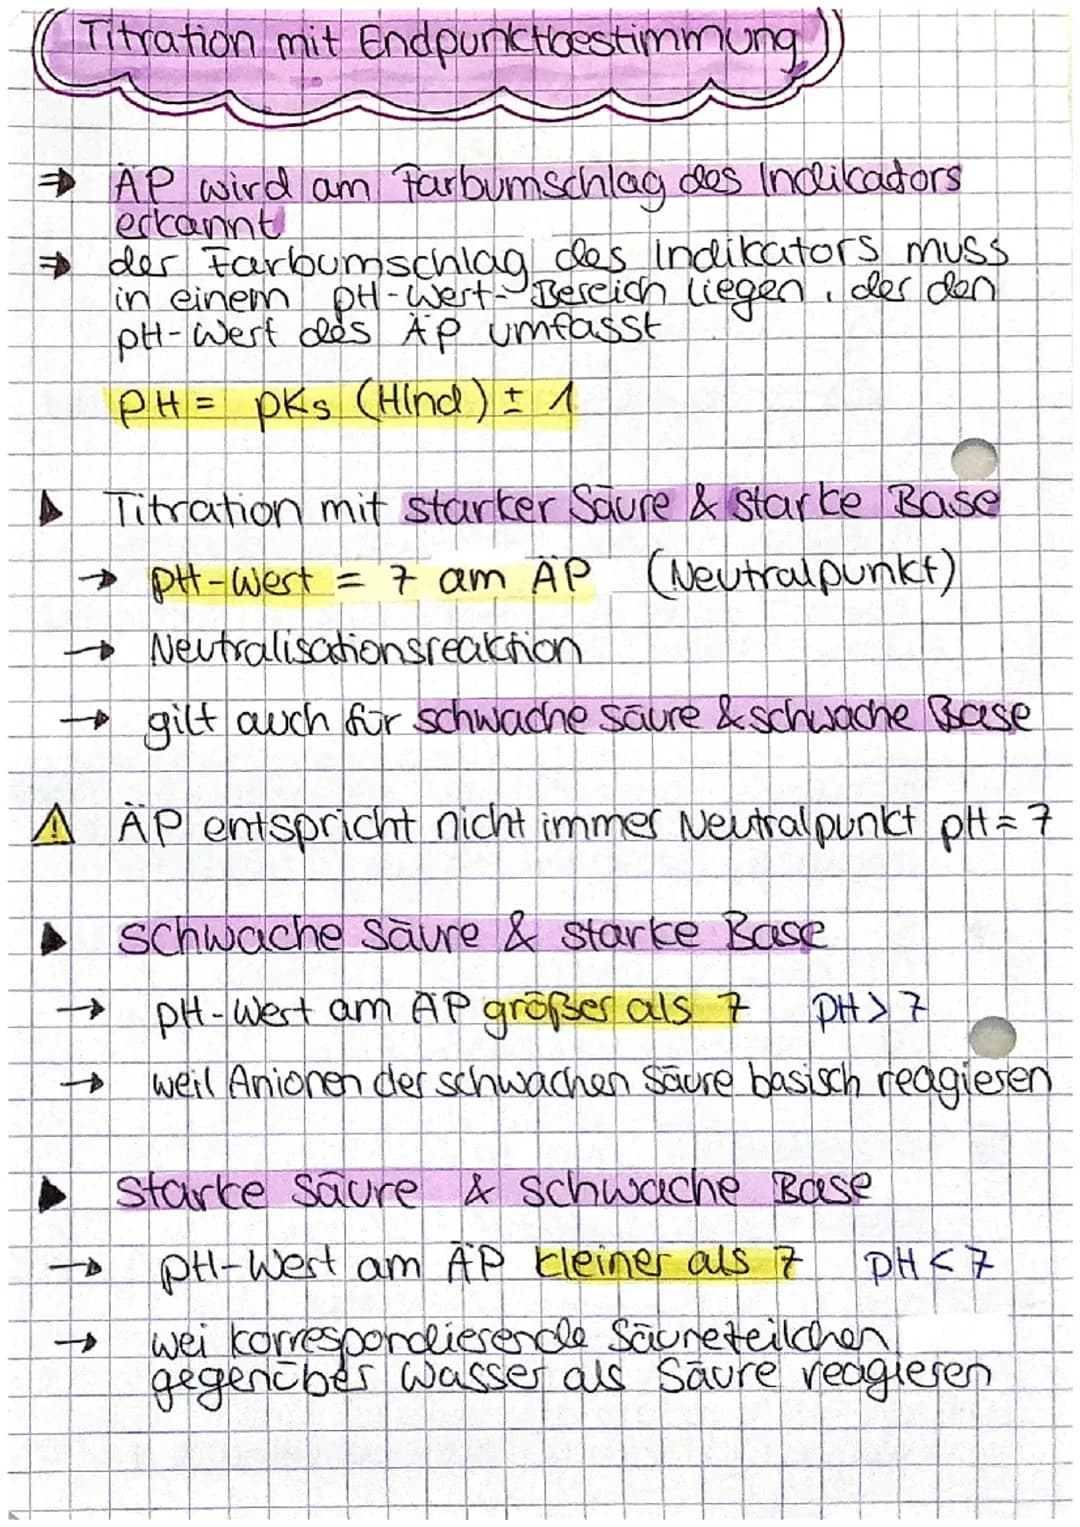 Titration mit Endpunktbestimmung
⇒ ÄP wird am Farbumschlag des Indikators
erkannt
⇒ der Farbumschlag des Indikators muss
in einem pH-Wert-Bereich liegen, der den
pH-Wert des ÄP umfasst
pH = pKs (HInd) ± 1
▶ Titration mit starker Säure & starke Base
→ pH-Wert = 7 am ÄP (Neutralpunkt)
→ Neutralisationsreaktion
→ gilt auch für schwache säure & schwache Base
⚠ ÄP entspricht nicht immer Neutralpunkt pH = 7
▶ schwache Säure & starke Base
→ pH-Wert am ÄP größer als 7 pH > 7
→ weil Anionen der schwachen Säure basisch reagieren
▶ starke Säure & schwache Base
→ pH-Wert am ÄP kleiner als 7 pH < 7
→ wei korrespondierende Säureteilchen
gegenüber Wasser als Säure reagieren